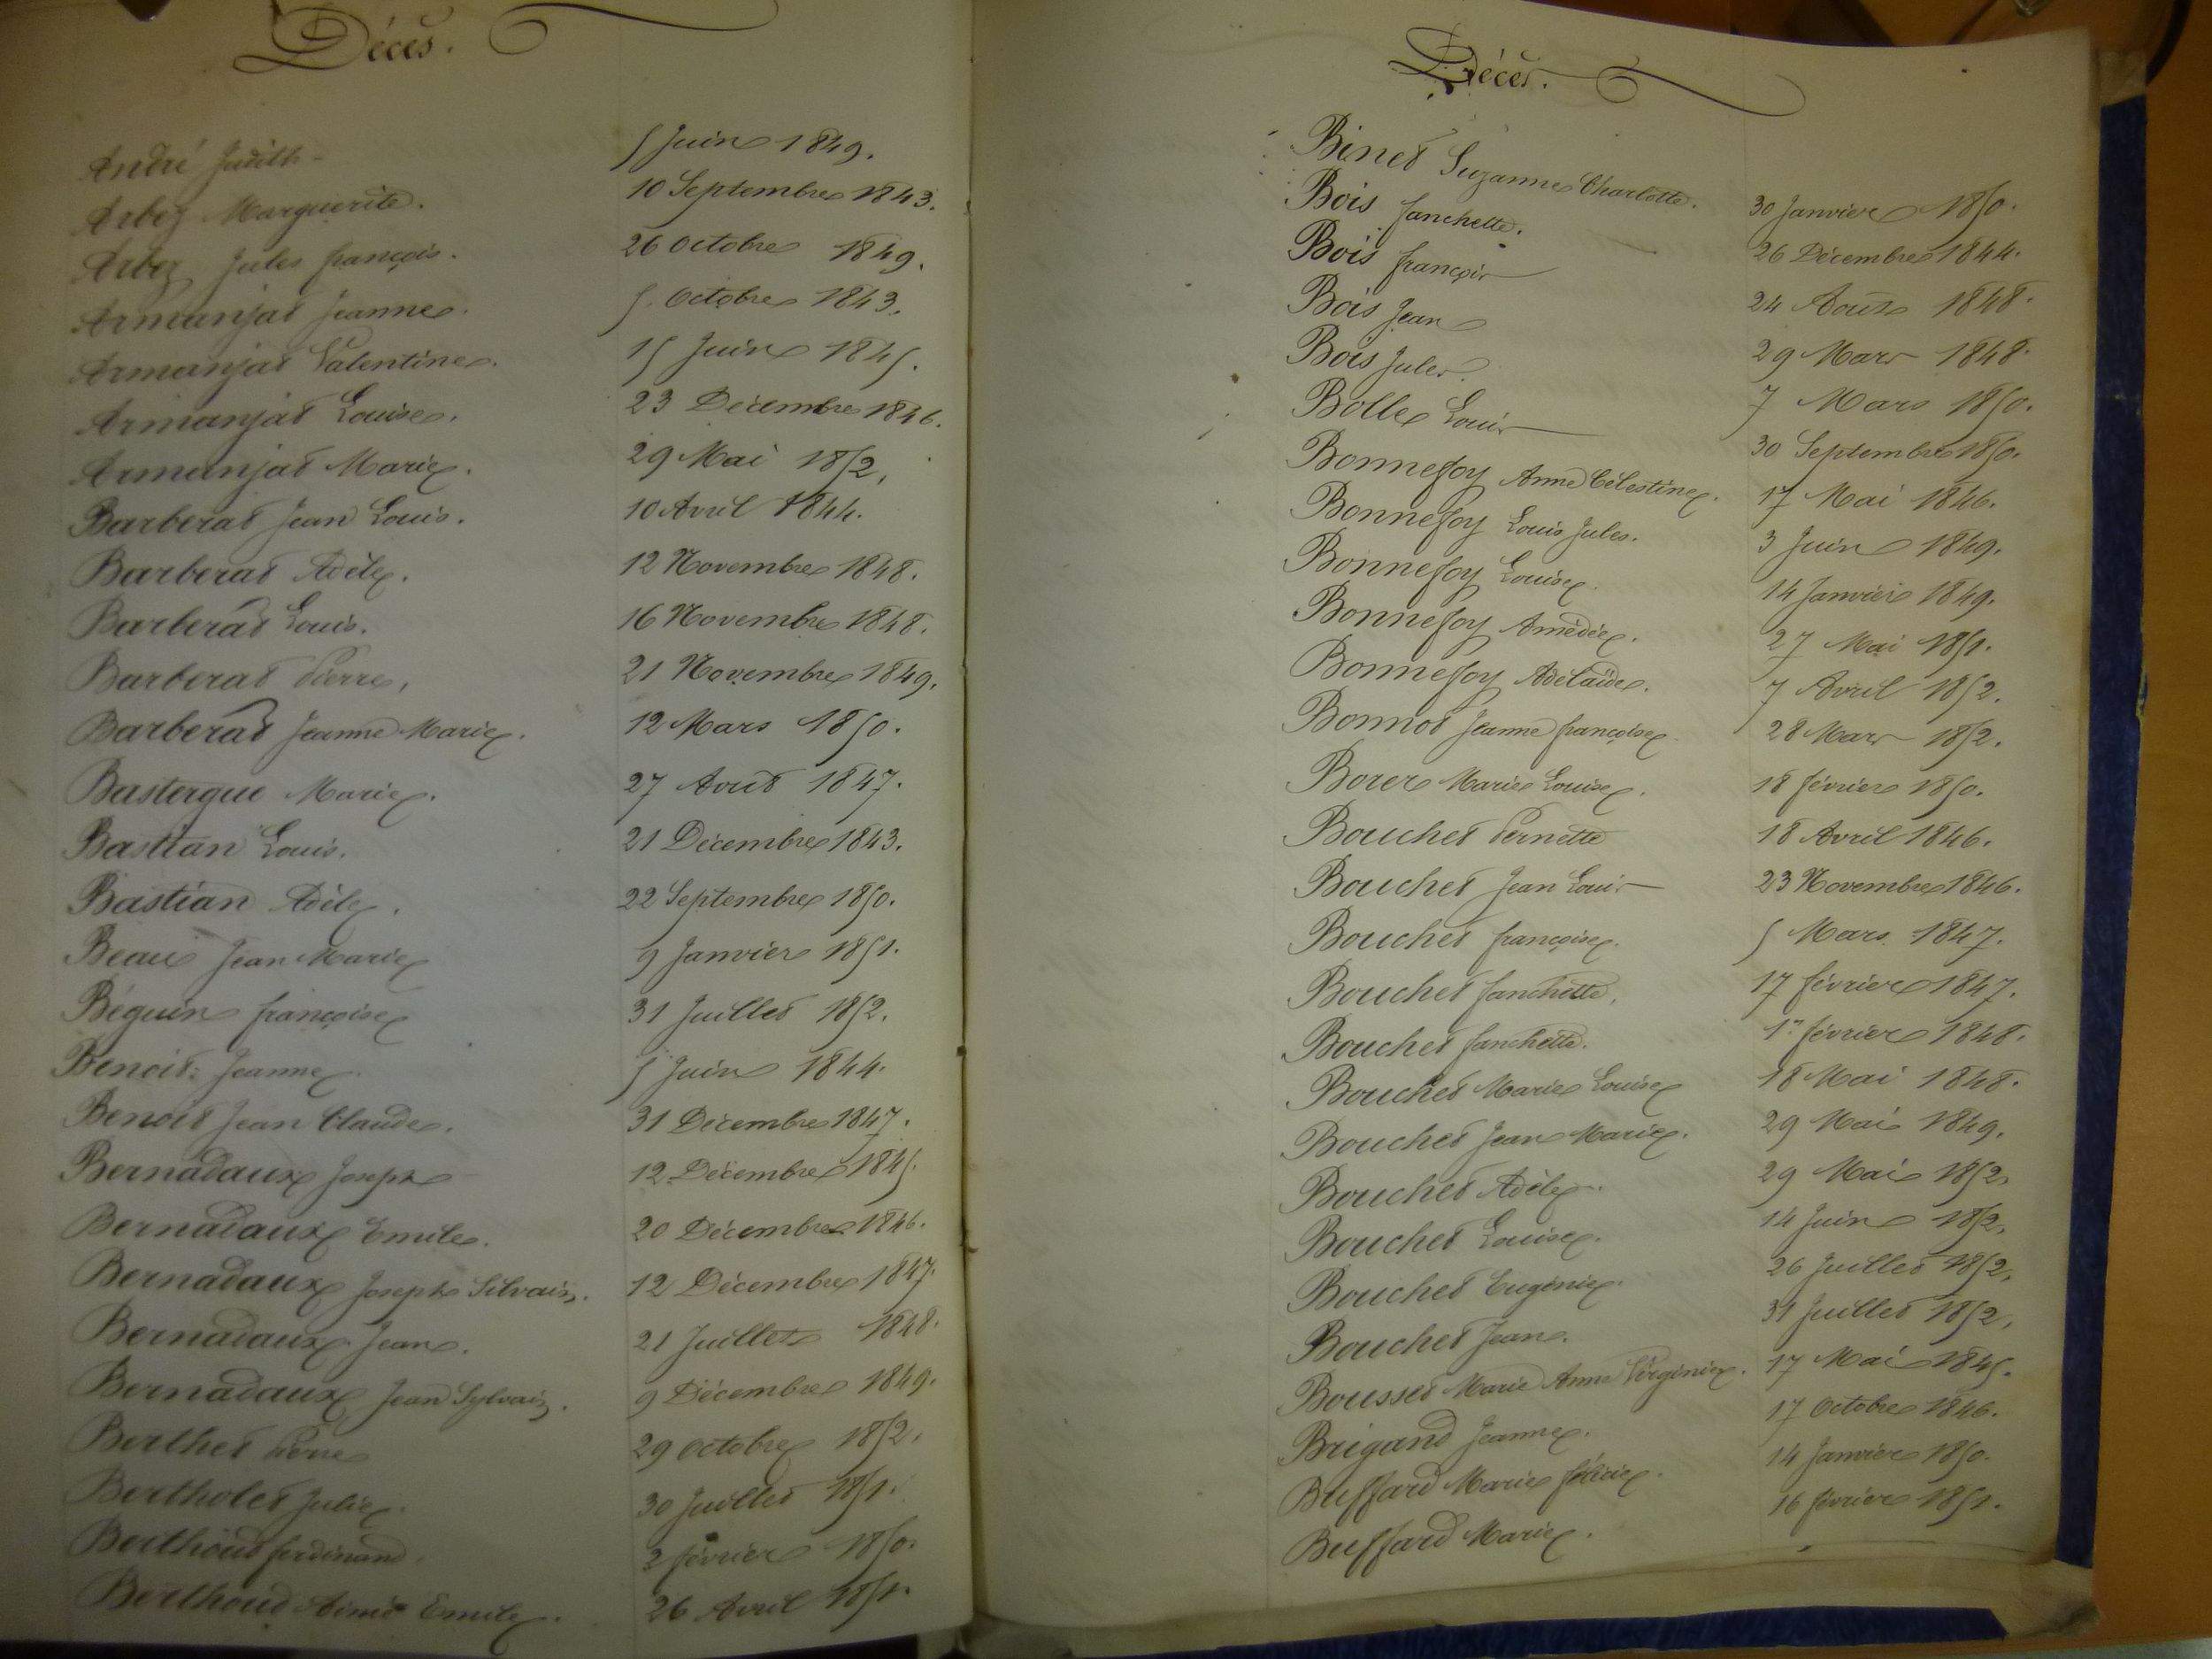 Décès.
André Judith 5 Juin 1849.
Arbez Marguerite. 10 Septembre 1843.
Arbez Jules françois. 26 Octobre 1849.
Armanjat Jeanne. 5. Octobre 1843.
Armanjat Valentine. 15 Juin 1845.
Armanjat Louise. 23 Décembre 1846.
Armanjat Marie. 29 Mai 1852.
Barberat Jean Louis. 10 Avril 1844.
Barberat Adèle. 12 Novembre 1848.
Barberat Louis. 16 Novembre 1848.
Barberat Pierre. 21 Novembre 1849.
Barberat Jeanne Marie. 12 Mars 1850.
Bastergue Marie. 27 Aout 1847.
Bastian Louis. 21 Décembre 1843.
Bastian Adèle. 22 Septembre 1850.
Beaux Jean Marie 9 Janvier 1851.
Béguin françoise 31 Juillet 1852.
Benoit Jeanne 5 Juin 1844.
Benoit Jean Claude. 31 Décembre 1847.
Bernadaux Joseph 12 Décembre 1845.
Bernadaux Emile. 20 Décembre 1846.
Bernadaux Joseph Silvain. 12 Décembre 1847.
Bernadaux Jean. 21 Juillet 1848.
Bernadaux Jean Sylvain. 9 Décembre 1849.
Berthet Pierre 29 Octobre 1852.
Bertholet Julie. 30 Juillet 1851.
Berthoud ferdinand. 2 février 1850.
Berthoud Aimé Emile. 26 Avril 1851.
Décès.
Binet Suzanne Charlotte. 30 Janvier 1850.
Bois fanchette. 26 Décembre 1844.
Bois françois 24 Aout 1848.
Bois Jean 29 Mars 1848.
Bois Jules. 7 Mars 1850.
Bolle Louis 30 Septembre 1850.
Bonnefoy Anne Célestine. 17 Mai 1846.
Bonnefoy Louis Jules. 3 Juin 1849.
Bonnefoy Louise. 14 Janvier 1849.
Bonnefoy Amédée. 27 Mai 1851.
Bonnefoy Adélaïde. 7 Avril 1852.
Bonnot Jeanne françoise 28 Mars 1852.
Borer Marie Louise. 18 février 1850.
Bouchet Pernette 18 Avril 1846.
Bouchet Jean Louis 23 Novembre 1846.
Bouchet françoise. 5 Mars 1847.
Bouchet fanchette. 17 février 1847.
Bouchet fanchette. 1er février 1848.
Bouchet Marie Louise 18 Mai 1848.
Bouchet Jean Marie. 29 Mai 1849.
Bouchet Adèle. 29 Mai 1852.
Bouchet Louise. 14 Juin 1852.
Bouchet Eugénie. 26 Juillet 1852.
Bouchet Jean. 31 Juillet 1852.
Bousset Marie Anne Virginie. 17 Mai 1845.
Brigand Jeanne. 17 Octobre 1846.
Buffard Marie félicie. 14 Janvier 1850.
Buffard Marie. 16 février 1851.